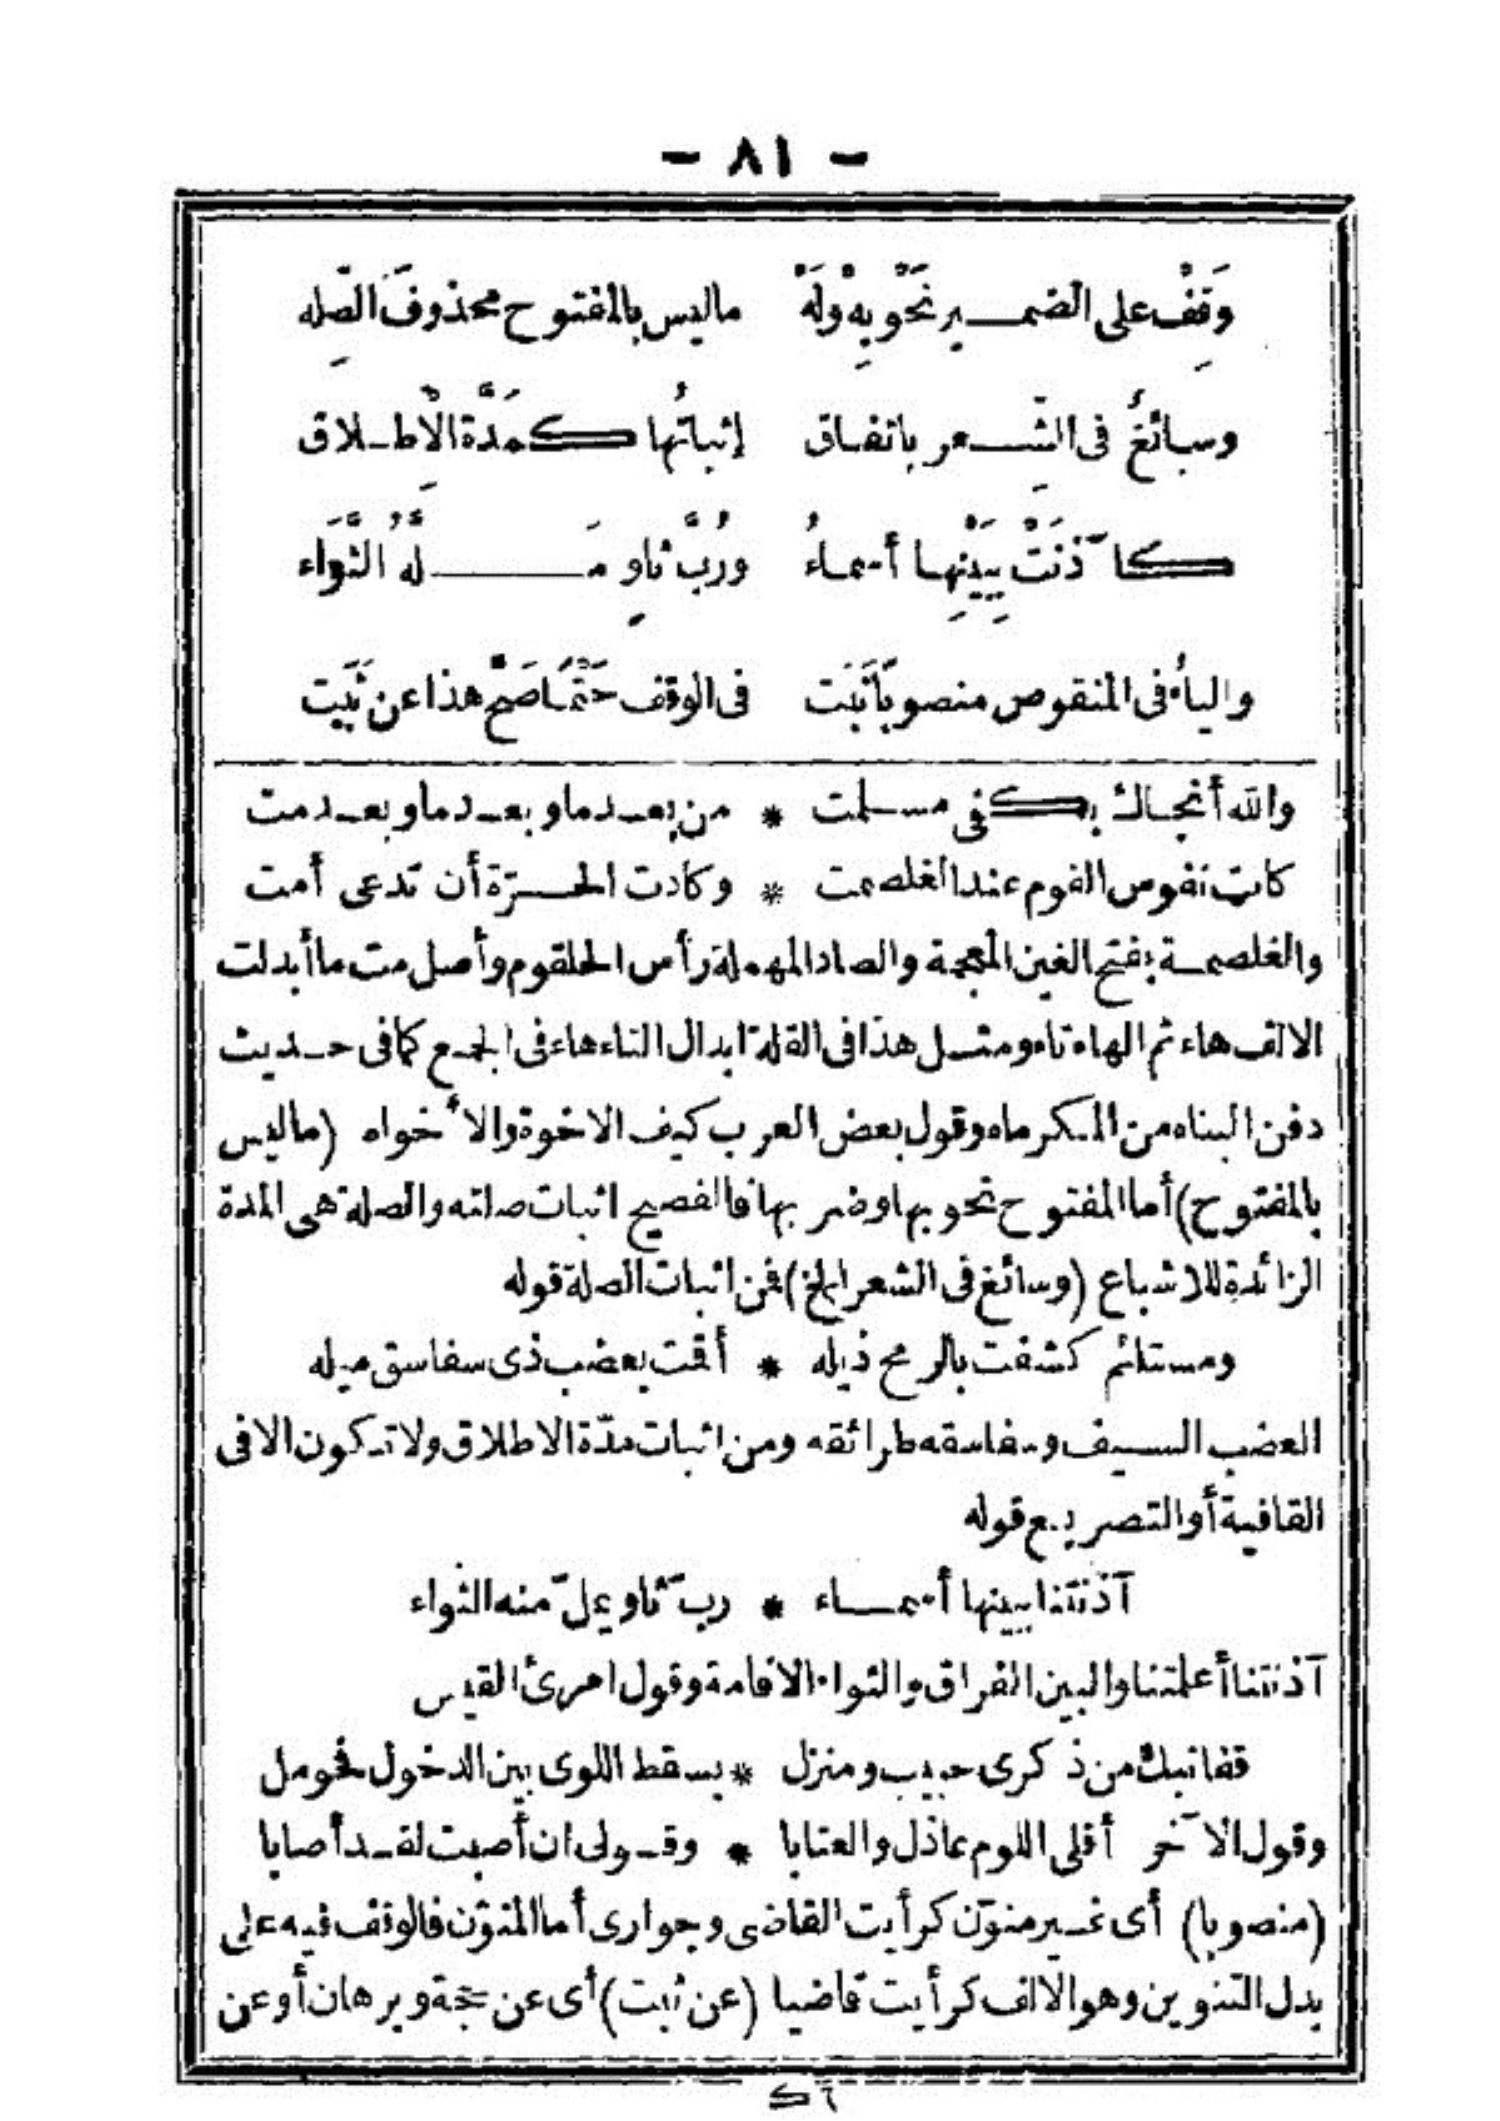 - ٨١ -
وَقِفْ على الضمير نَحْوُ بِهْ وَلَهْ ماليس بالمفتوح محذوفَ الصِّله
وسائغٌ فى الشِّعر باتفاق إثباتُها كمَدَّة الْاِطلاق
كآذَنَتْ بِبَيْنِها أسماءُ ورُبَّ ثاوٍ مَلَّهُ الثَّوَاء
والياءُ فى المنقوص منصوبًا ثَبَت فى الوقف حَتْمًا صَحَّ هذا عن ثَبَت
والله أنجاك بكفى مسلمت * من بعدما وبعدما وبعدمت
كانت نفوس القوم عند الغلصمت * وكادت الحرّة أن تدعى أمت
والغلصمة بفتح الغين المعجمة والصاد المهملة رأس الحلقوم وأصل مت ما أبدلت
الالف هاء ثم الهاء تاء ومثل هذا فى القلة ابدال التاء هاء فى الجمع كما فى حديث
دفن البناه من المكرماه وقول بعض العرب كيف الاخوة والأخواه (ماليس
بالمفتوح) أما المفتوح نحو بها وضر بها فالفصيح اثبات صلته والصلة هى المدة
الزائدة للاشباع (وسائغ فى الشعر الخ) فمن اثبات الصلة قوله
ومستلئم كشفت بالرمح ذيله * أقمت بعضب ذى سفاسق ميله
العضب السيف وسفاسقه طرائقه ومن اثبات مدّة الاطلاق ولا تكون الا فى
القافية أو التصريع قوله
آذنتنا ببينها أسماء * ربّ ثاو يملّ منه الثواء
آذنتنا أعلمتنا والبين الفراق والثواء الاقامة وقول امرئ القيس
قفانبك من ذكرى حبيب ومنزل * بسقط اللوى بين الدخول فحومل
وقول الآخر أقلى اللوم عاذل والعتابا * وقولى ان أصبت لقد أصابا
(منصوبا) أى غير منوّن كرأيت القاضى وجوارى أما المنوّن فالوقف فيه على
بدل التنوين وهو الالف كرأيت قاضيا (عن ثبت) أى عن حجة وبرهان أو عن